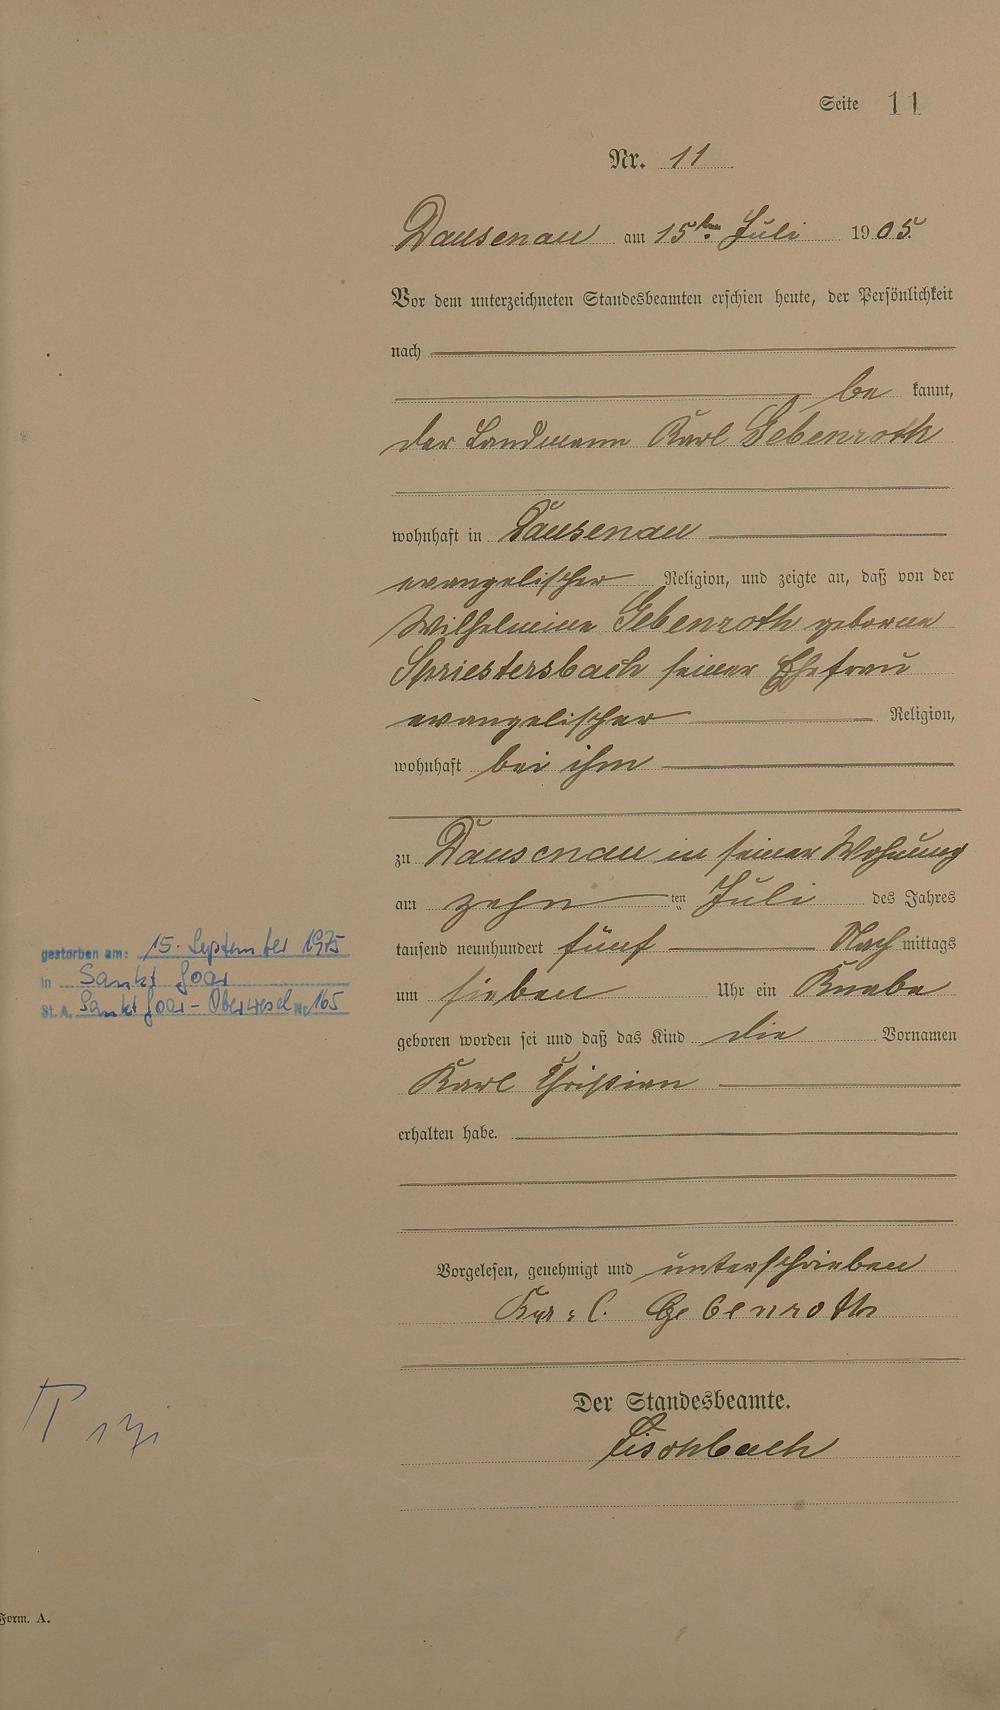 Seite 11
Nr. 11
Dausenau am 15ten Juli 1905.
Vor dem unterzeichneten Standesbeamten erschien heute, der Persönlichkeit
nach
be kannt,
der Landmann Karl Gebenroth
wohnhaft in Dausenau
evangelischer Religion, und zeigte an, daß von der
Wilhelmine Gebenroth geborne
Spriestersbach seiner Ehefrau
evangelischer Religion,
wohnhaft bei ihm
zu Dausenau in seiner Wohnung
am zehn ten Juli des Jahres
tausend neunhundert fünf Nach mittags
um sieben Uhr ein Knabe
geboren worden sei und daß das Kind die Vornamen
Karl Christian
erhalten habe.
gestorben am: 15. September 1975
in Sankt Goar
St. A. Sankt Goar - Oberwesel Nr. 165
Vorgelesen, genehmigt und unterschrieben
Gebenroth
Der Standesbeamte.
Fischbach
Form. A.